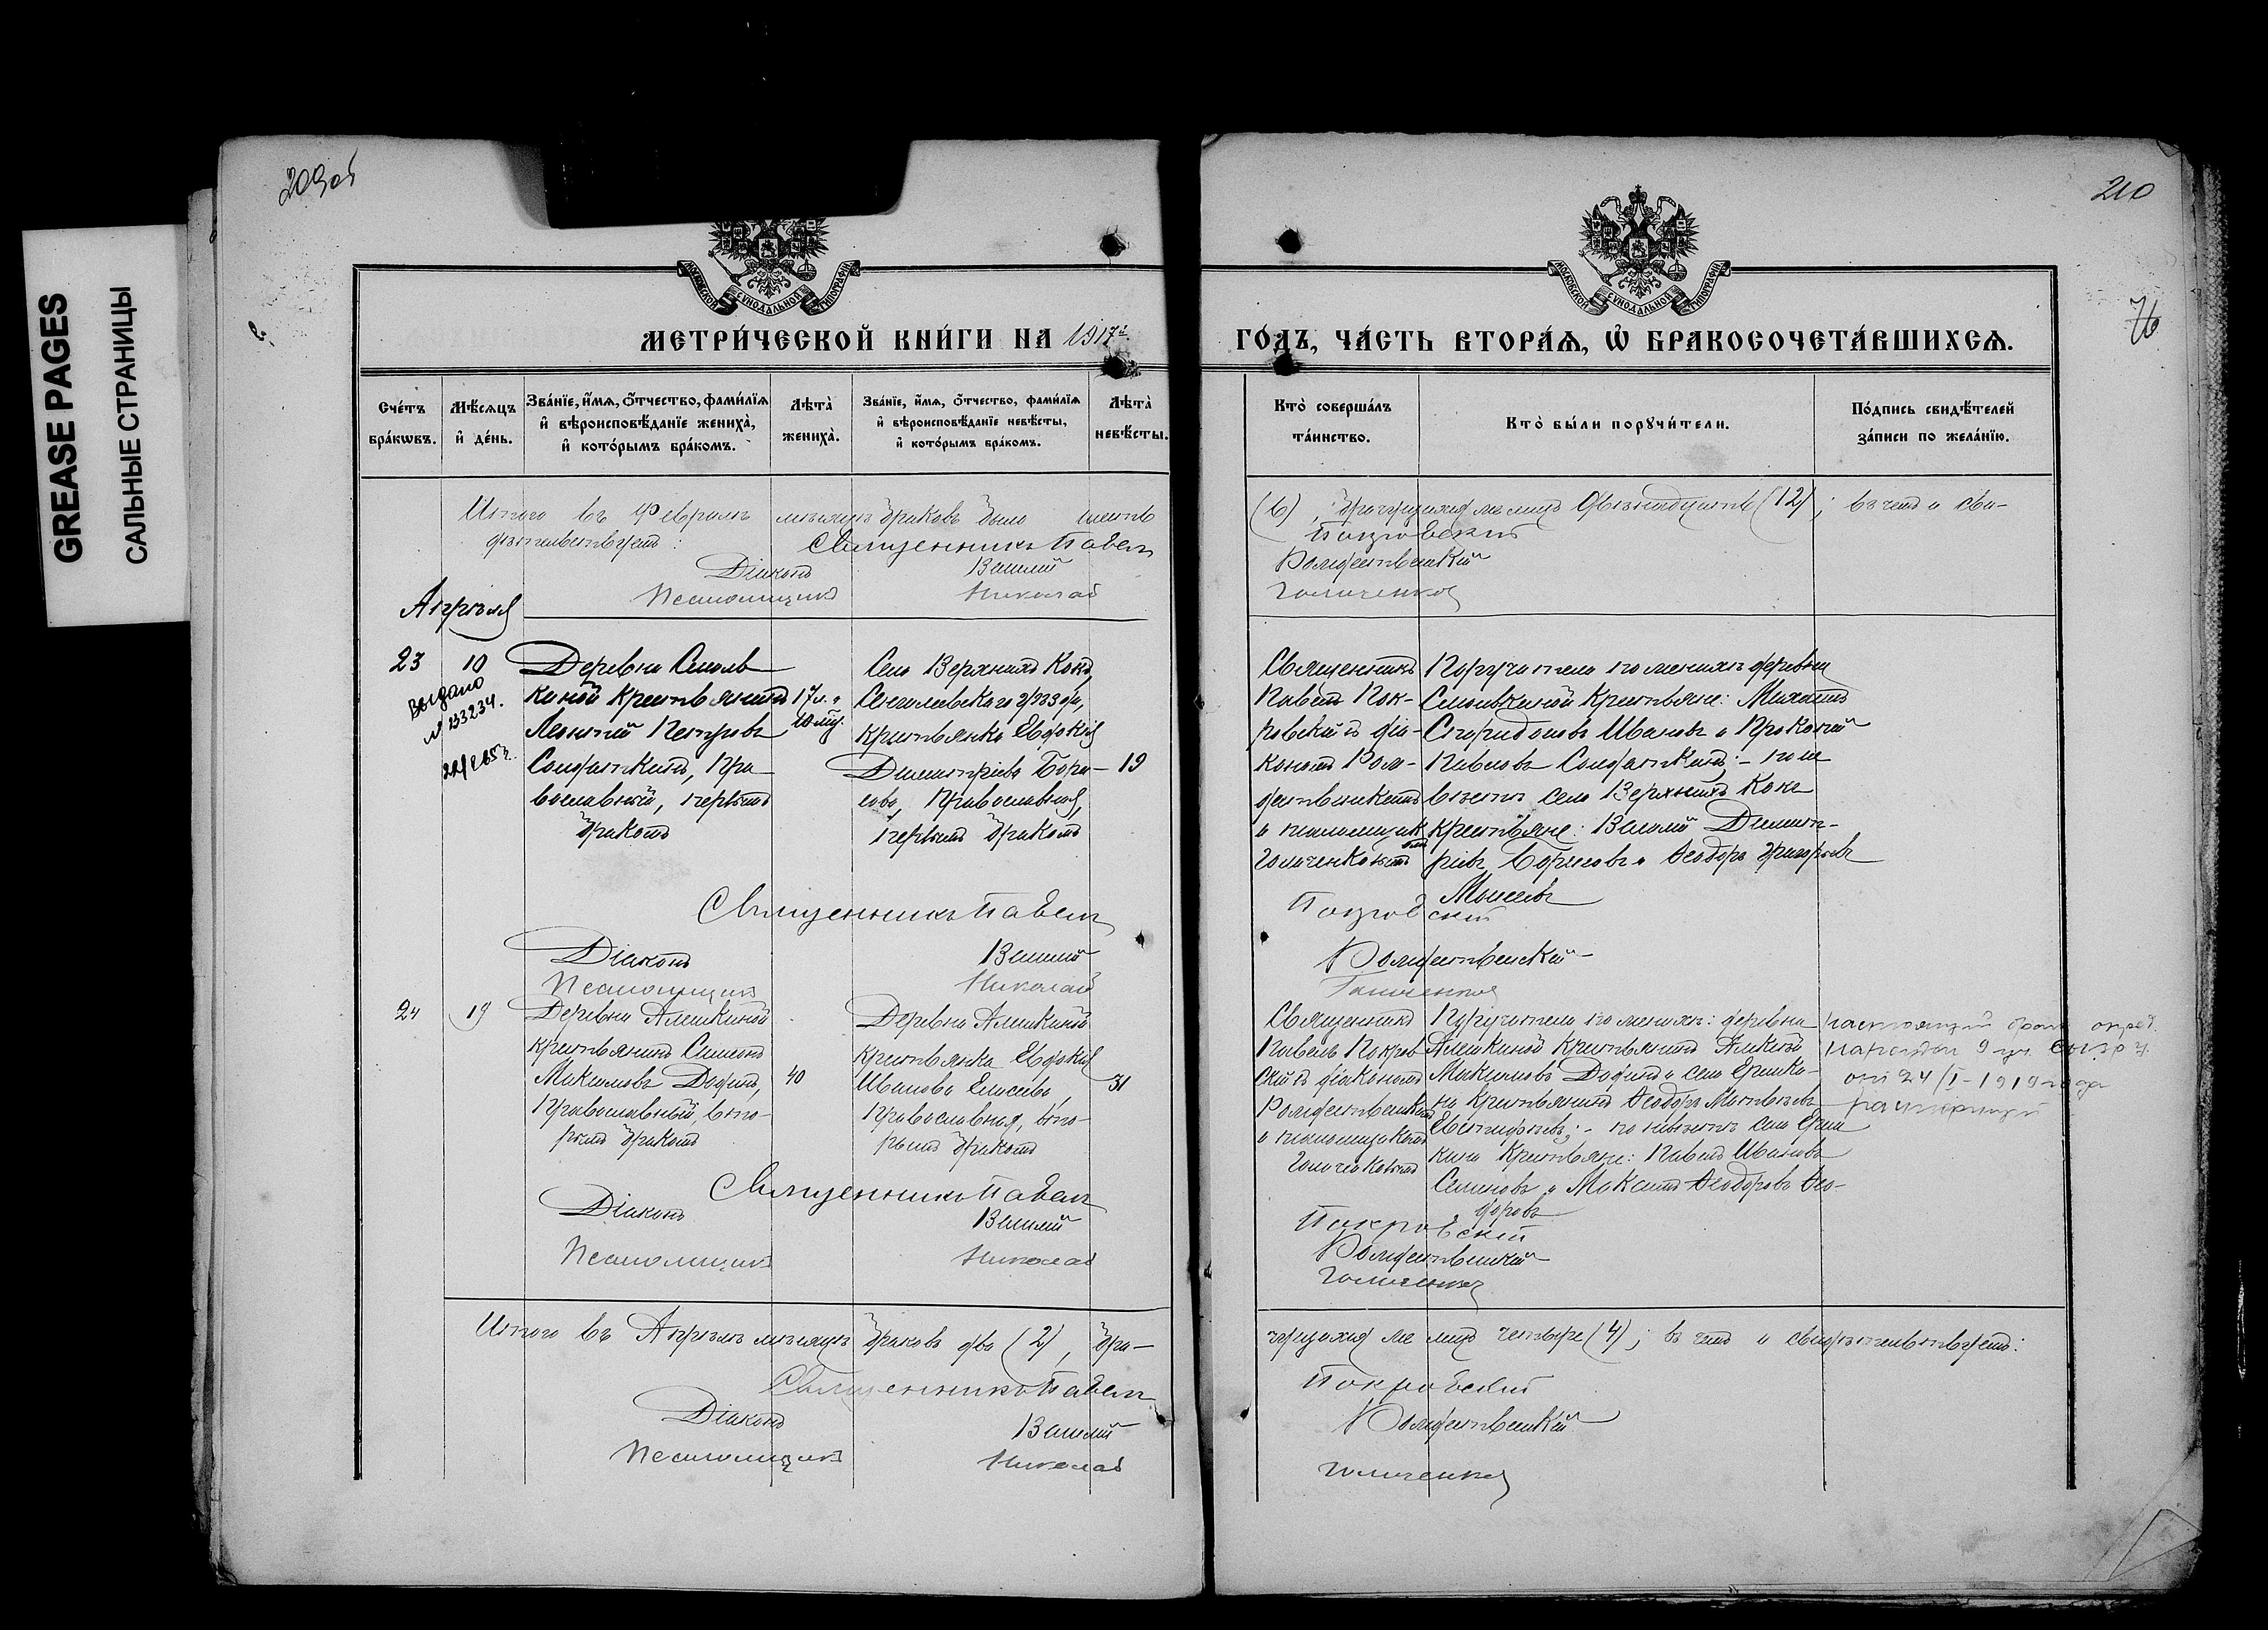 GREASE PAGES
САЛЬНЫЕ СТРАНИЦЫ
209об
210
76
МОСКОВСКОЙ СѴНОДАЛЬНОЙ ТИПОГРАФІИ
МОСКОВСКОЙ СѴНОДАЛЬНОЙ ТИПОГРАФІИ
МЕТРИ́ЧЕСКОЙ КНИ́ГИ НА 1917й ГО́ДЪ, ЧА́СТЬ ВТОРА́Ѧ, Ѡ БРАКОСОЧЕТА́ВШИХСѦ.
Сче́тъ бра́кѡвъ.
Мѣ́сѧцъ и́ де́нь.
Зва́нїе, и́мѧ, ѻ́тчество, фами́лїѧ и́ вѣроисповѣ́данїе жениха̀, и́ кото́рымъ бра́комъ.
Лѣта̀ жениха̀.
Зва́нїе, и́мѧ, ѻ́тчество, фами́лїѧ и́ вѣроисповѣ́данїе невѣ́сты, и́ кото́рымъ бра́комъ.
Лѣта̀ невѣ́сты.
Кто̀ соверша́лъ та́инство.
Кто̀ бы́ли порꙋчи́тели.
По́дпись свидѣ́телей за́писи по жела́нїю.
Итого въ Февралѣ мѣсяцѣ браковъ было шесть
(6), брачущихся же лицъ двѣнадцать (12); въ чемъ и сви-
дѣтельствуемъ: Священникъ Павелъ Покровскій
Діаконъ Василій Рождественскій
Псаломщикъ Николай
Апрѣля
23
10
Выдано
N 133234.
Деревни Смоль
киной крестьянинъ
Леонтій Петровъ
Солдаткинъ, Пра
вославный, первымъ
бракомъ
17 л. и
10 мѣс.
Село Верхнихъ Кокъ
Сенгилеевскаго уѣзда,
крестьянка Евдокія
Димитріева Бори-
сова, Православная,
первымъ бракомъ
19
Священникъ
Павелъ Пок-
ровскій съ діа-
кономъ Рож-
дественскимъ
и псаломщик
омъ
Поручители по женихѣ деревни
Смолькиной крестьяне: Михаилъ
Спиридоновъ Ивановъ и Прокопій
Павловъ Солдаткинъ; - по не
вѣстѣ села Верхнихъ Кокъ
крестьяне: Василій Димит-
ріевъ Борисовъ и Ѳеодоръ Григорьевъ
Моисеевъ
Священникъ Павелъ Покровскій
Діаконъ Василій Рождественскій
Псаломщикъ Николай
24
19
Деревни Алешкиной
крестьянинъ Симеонъ
Максимовъ Додинъ,
Православный, вто-
рымъ бракомъ
40
Деревни Алешкиной
крестьянка Евдокія
Иванова Елисѣева,
Православная, вто-
рымъ бракомъ
31
Священникъ
Павелъ Покров
скій съ діакономъ
Рождественскимъ
и псаломщикомъ
Поручители по женихѣ: деревни
Алешкиной крестьянинъ Алексѣй
Максимовъ Додинъ и села Ерики-
на крестьянинъ Ѳеодоръ Матвѣевъ
Евстифѣевъ; - по невѣстѣ села
крестьяне: Павелъ Ивановъ
Семеновъ и Максимъ Ѳеодоровъ Ѳео-
доровъ
настоящий брак опред.
народн 9 уч. Сызр у.
от 24/I-1919 года
расторгнут
Священникъ Павелъ Покровскій
Діаконъ Василій Рождественскій
Псаломщикъ Николай
Итого въ Апрѣлѣ мѣсяцѣ браковъ два (2), бра-
чущихся же лицъ четыре (4); въ чемъ и свидѣтельствуемъ:
Священникъ Павелъ Покровскій
Діаконъ Василій Рождественскій
Псаломщикъ Николай